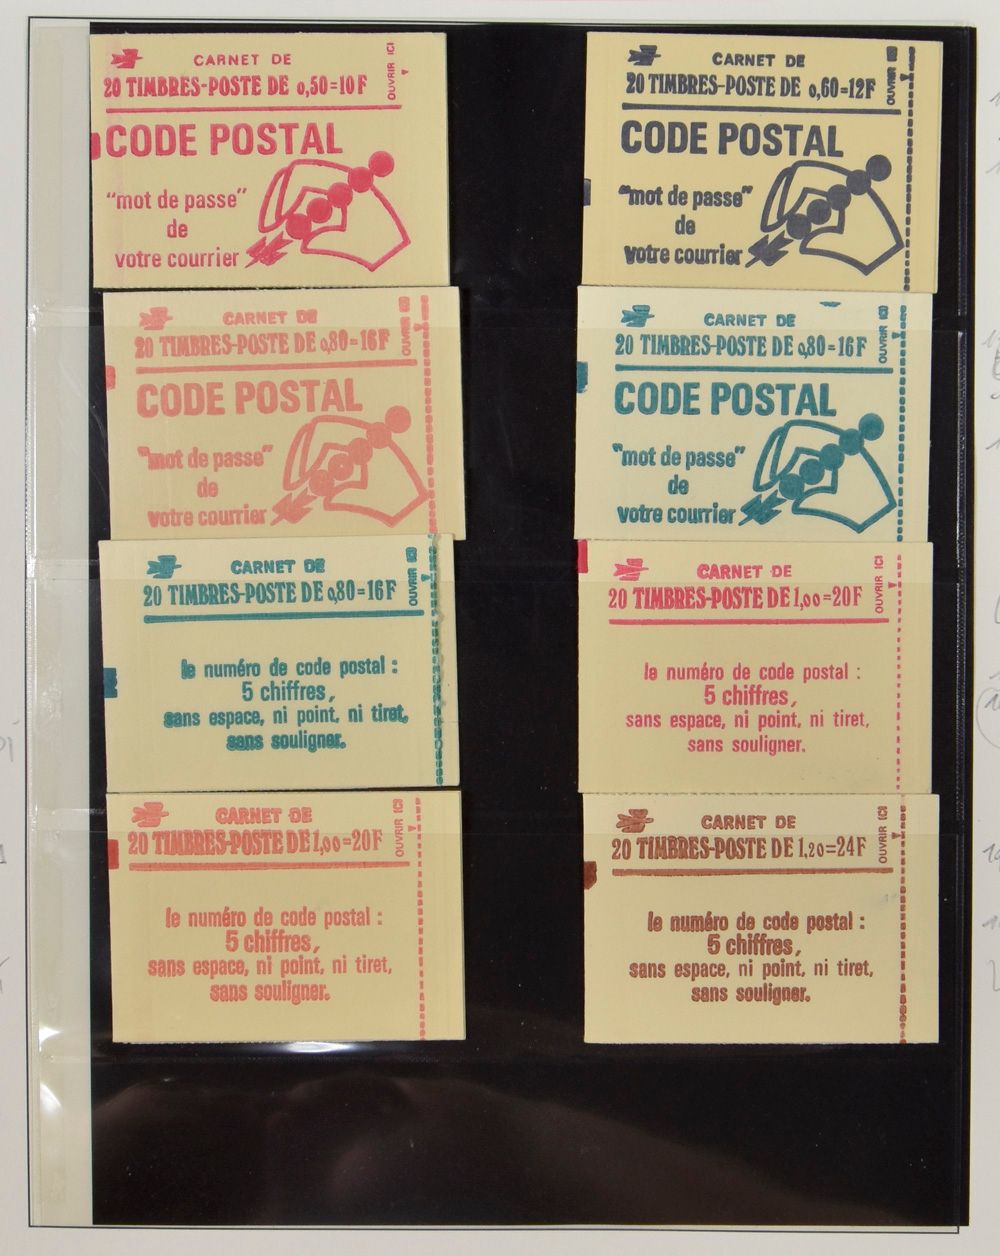 CARNET DE
20 TIMBRES-POSTE DE 0,50=10F
OUVRIR ICI
CODE POSTAL
"mot de passe"
de
votre courrier
CARNET DE
20 TIMBRES-POSTE DE 0,60=12F
OUVRIR ICI
CODE POSTAL
"mot de passe"
de
votre courrier
CARNET DE
20 TIMBRES-POSTE DE 0,80=16F
OUVRIR ICI
CODE POSTAL
"mot de passe"
de
votre courrier
CARNET DE
20 TIMBRES-POSTE DE 0,80=16F
OUVRIR ICI
CODE POSTAL
"mot de passe"
de
votre courrier
CARNET DE
20 TIMBRES-POSTE DE 0,80=16F
OUVRIR ICI
le numéro de code postal :
5 chiffres,
sans espace, ni point, ni tiret,
sans souligner.
CARNET DE
20 TIMBRES-POSTE DE 1,00=20F
OUVRIR ICI
le numéro de code postal :
5 chiffres,
sans espace, ni point, ni tiret,
sans souligner.
CARNET DE
20 TIMBRES-POSTE DE 1,00=20F
OUVRIR ICI
le numéro de code postal :
5 chiffres,
sans espace, ni point, ni tiret,
sans souligner.
CARNET DE
20 TIMBRES-POSTE DE 1,20=24F
OUVRIR ICI
le numéro de code postal :
5 chiffres,
sans espace, ni point, ni tiret,
sans souligner.